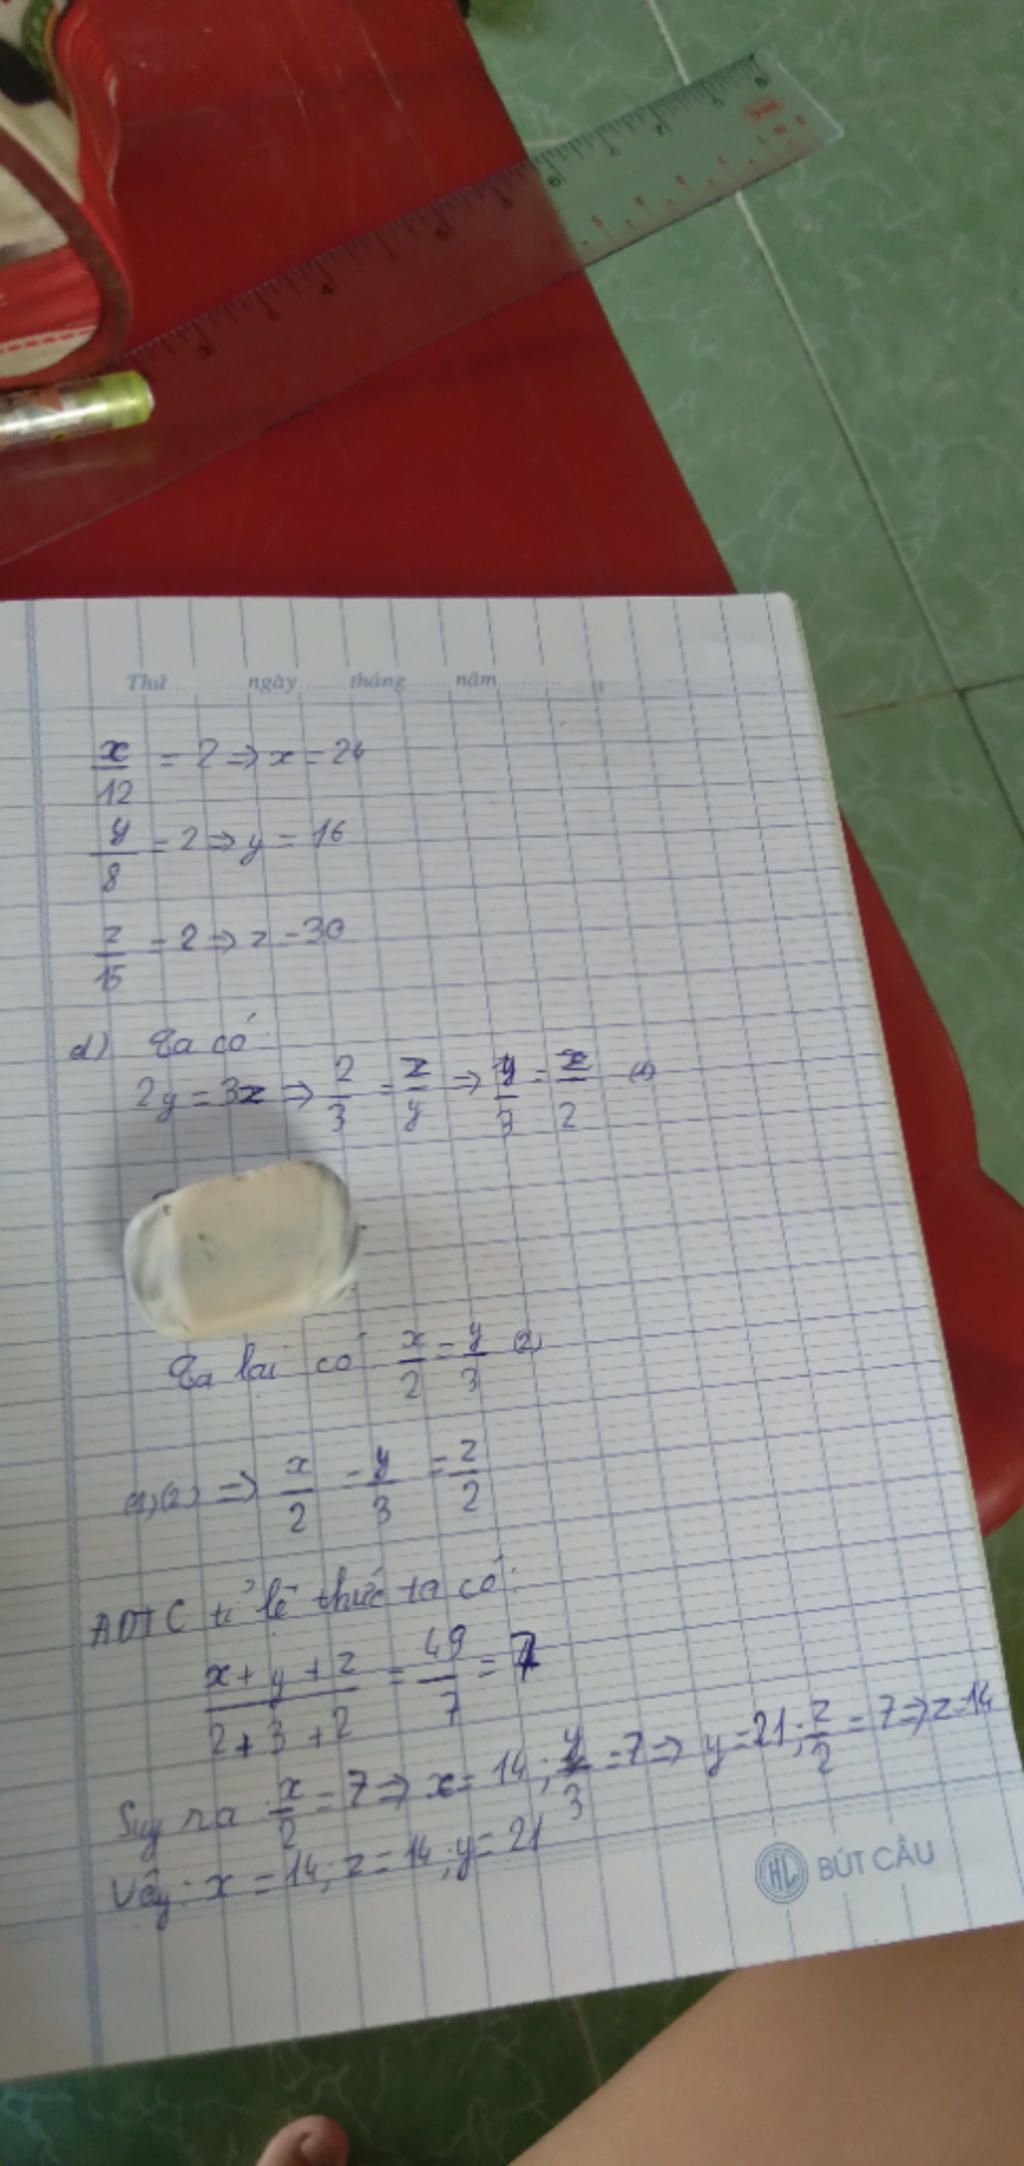 Thứ ngày tháng năm
x/12 = 2 => x = 24
y/8 = 2 => y = 16
z/15 = 2 => z = 30
d) Ta có
2y = 3z => 2/3 = z/y => y/3 = z/2 (1)
Ta lại có x/2 = y/3 (2)
(1)(2) => x/2 = y/3 = z/2
ADTC tỉ lệ thức ta có:
x + y + z / 2 + 3 + 2 = 49/7 = 7
Suy ra: x/2 = 7 => x = 14; y/3 = 7 => y = 21; z/2 = 7 => z = 14
Vậy: x = 14; z = 14; y = 21
HL BÚT CÂU